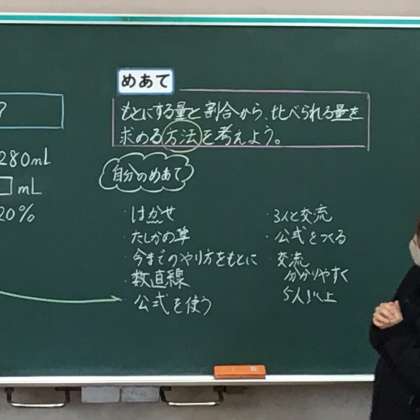 ?
280mL
□mL
20%
めあて
もとにする量と割合から、比べられる量を
求める方法を考えよう。
自分のめあて
・はかせ
・たしかめ算
・今までのやり方をもとに
・数直線
・公式を使う
・3人と交流
・公式をつくる
・交流
分かりやすく
5人以上